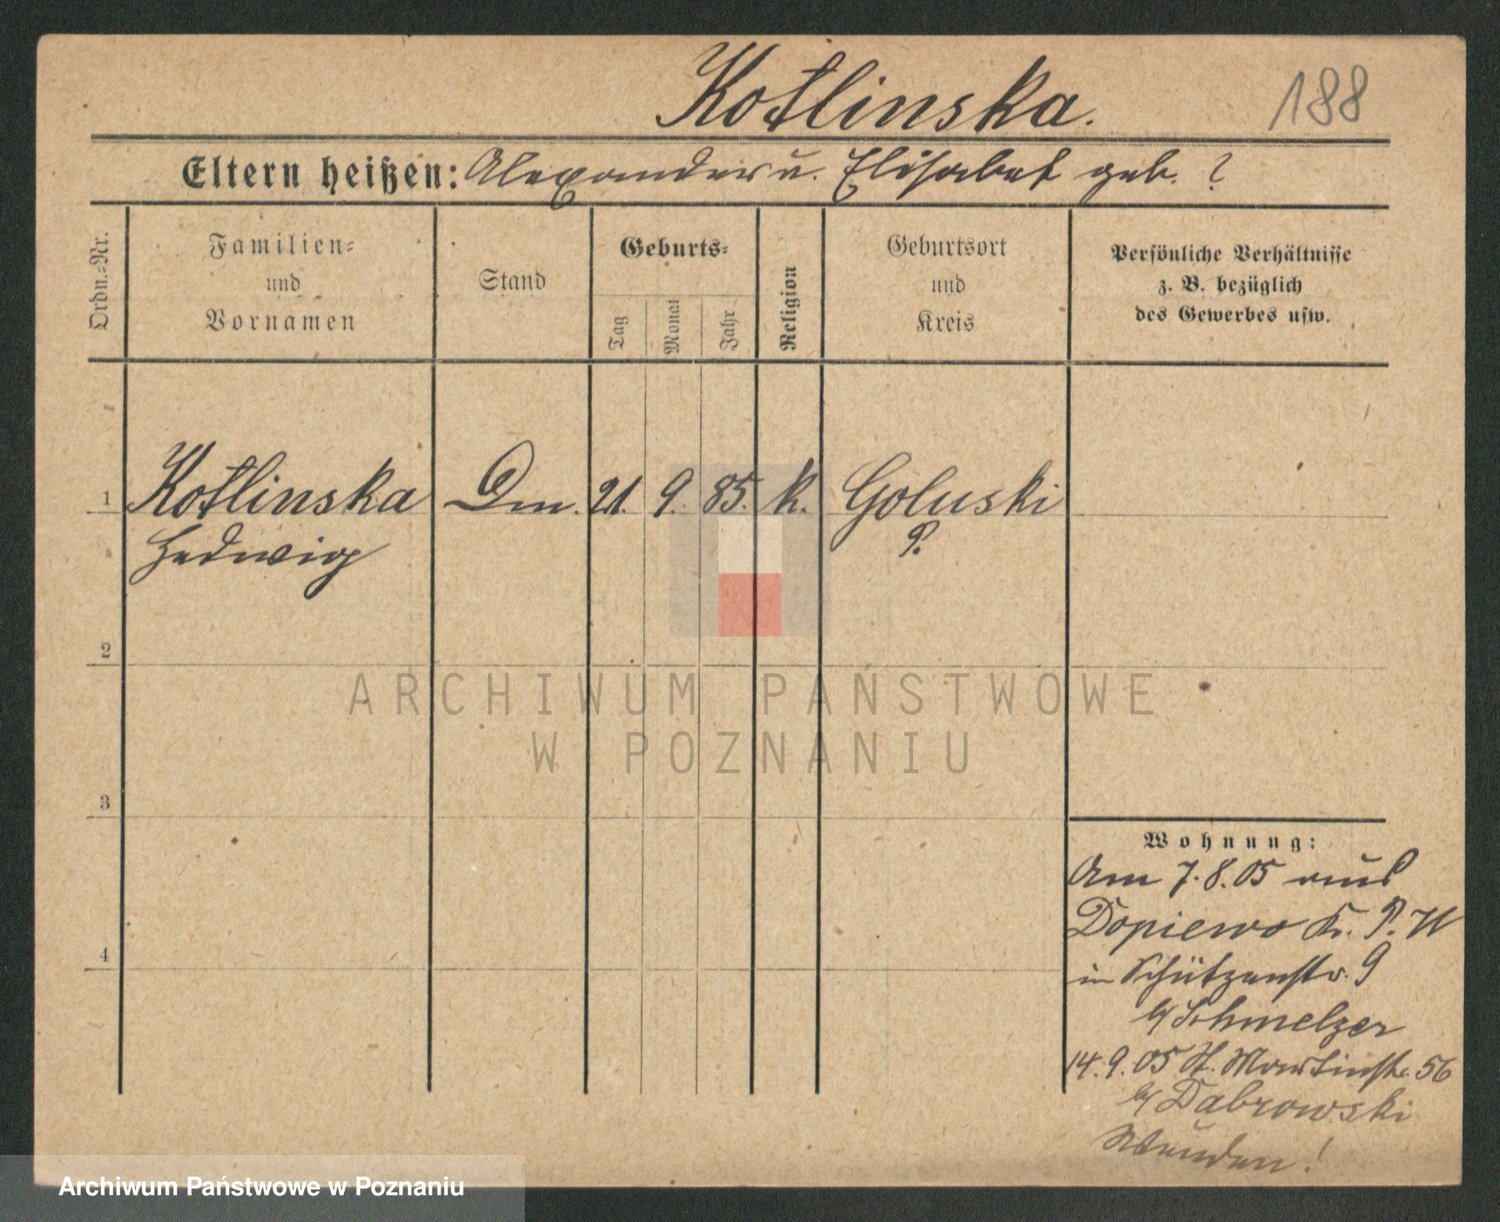 Kotlinska.
188
Eltern heißen: Alexander u. Elisabet geb. ?
Ordn.-Nr.
Familien-
und
Vornamen
Stand
Geburts-
Tag
Monat
Jahr
Religion
Geburtsort
und
Kreis
Persönliche Verhältnisse
z. B. bezüglich
des Gewerbes usw.
1 Kotlinska Dm. 21. 9. 85. K. Goluski
Hedwig P.
2
3
4
ARCHIWUM PAŃSTWOWE
W POZNANIU
Wohnung:
Am 7.8.05 aus
Dopiewo Kr. P. W
in Schützenstr. 9
b/ Schmelzer
14.9.05 St. Martinstr. 56
b/ Dabrowski
Archiwum Państwowe w Poznaniu